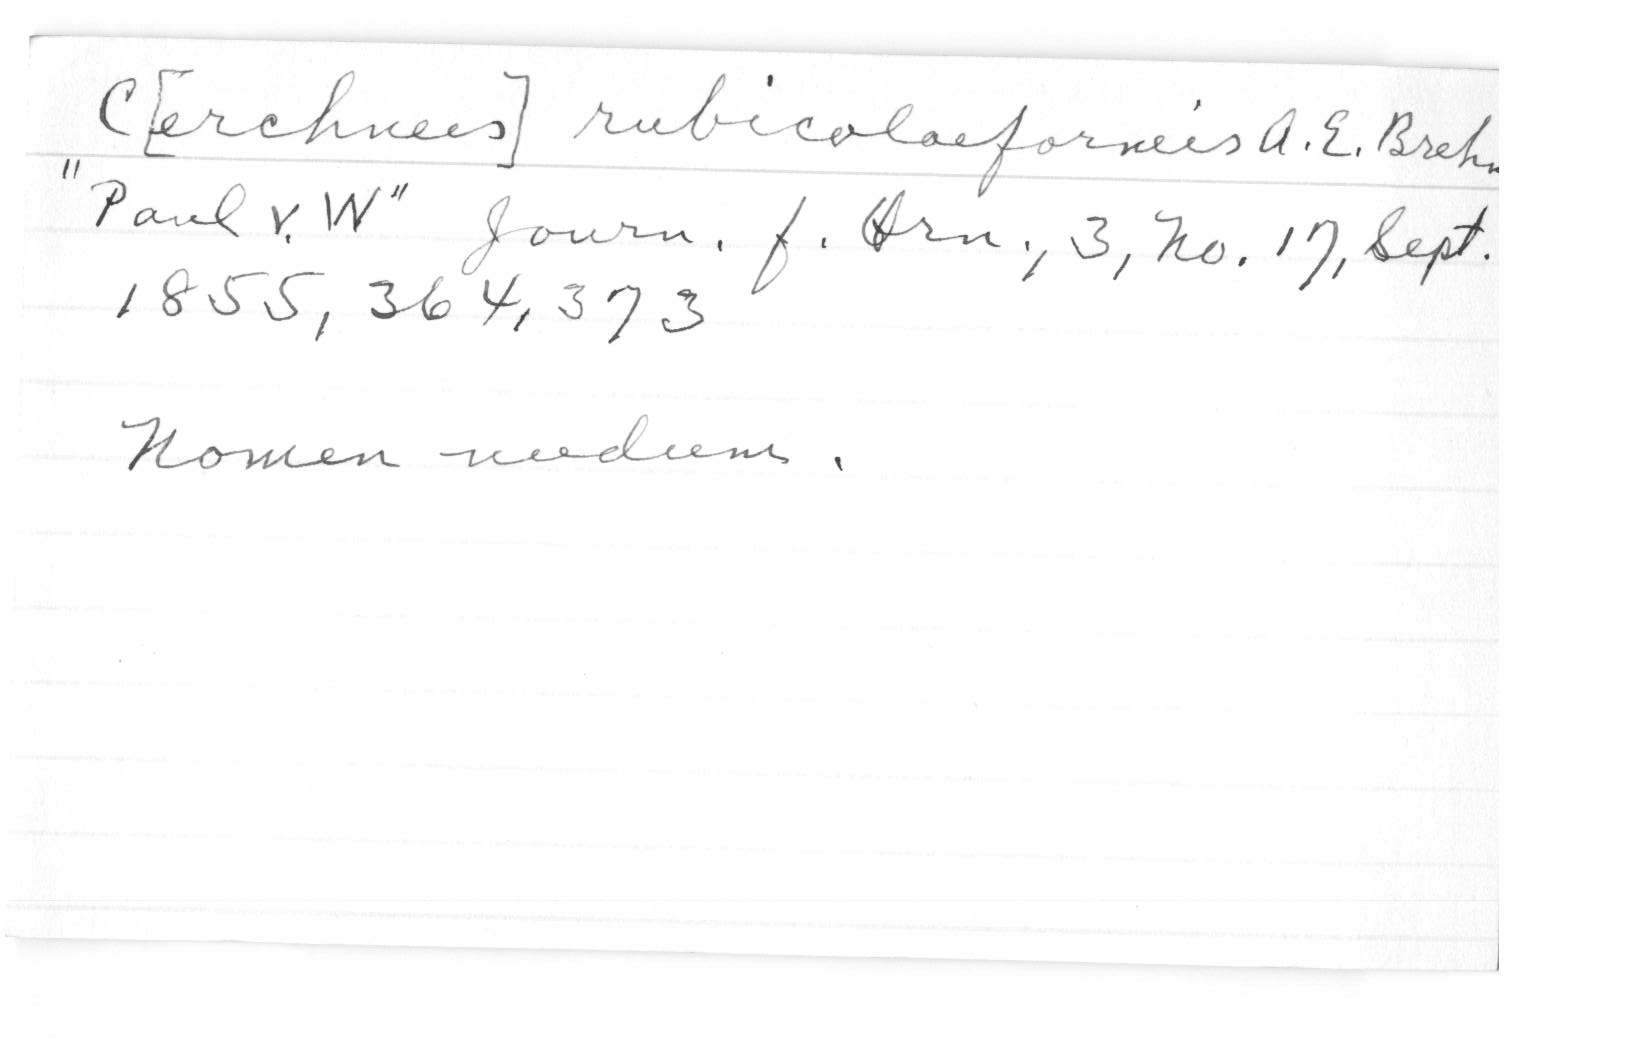 C[erchneis] rubicolaeformis A. E. Brehm
"Paul v. W" Journ. f. Orn., 3, No. 17, Sept.
1855, 364, 373
Nomen nudum.